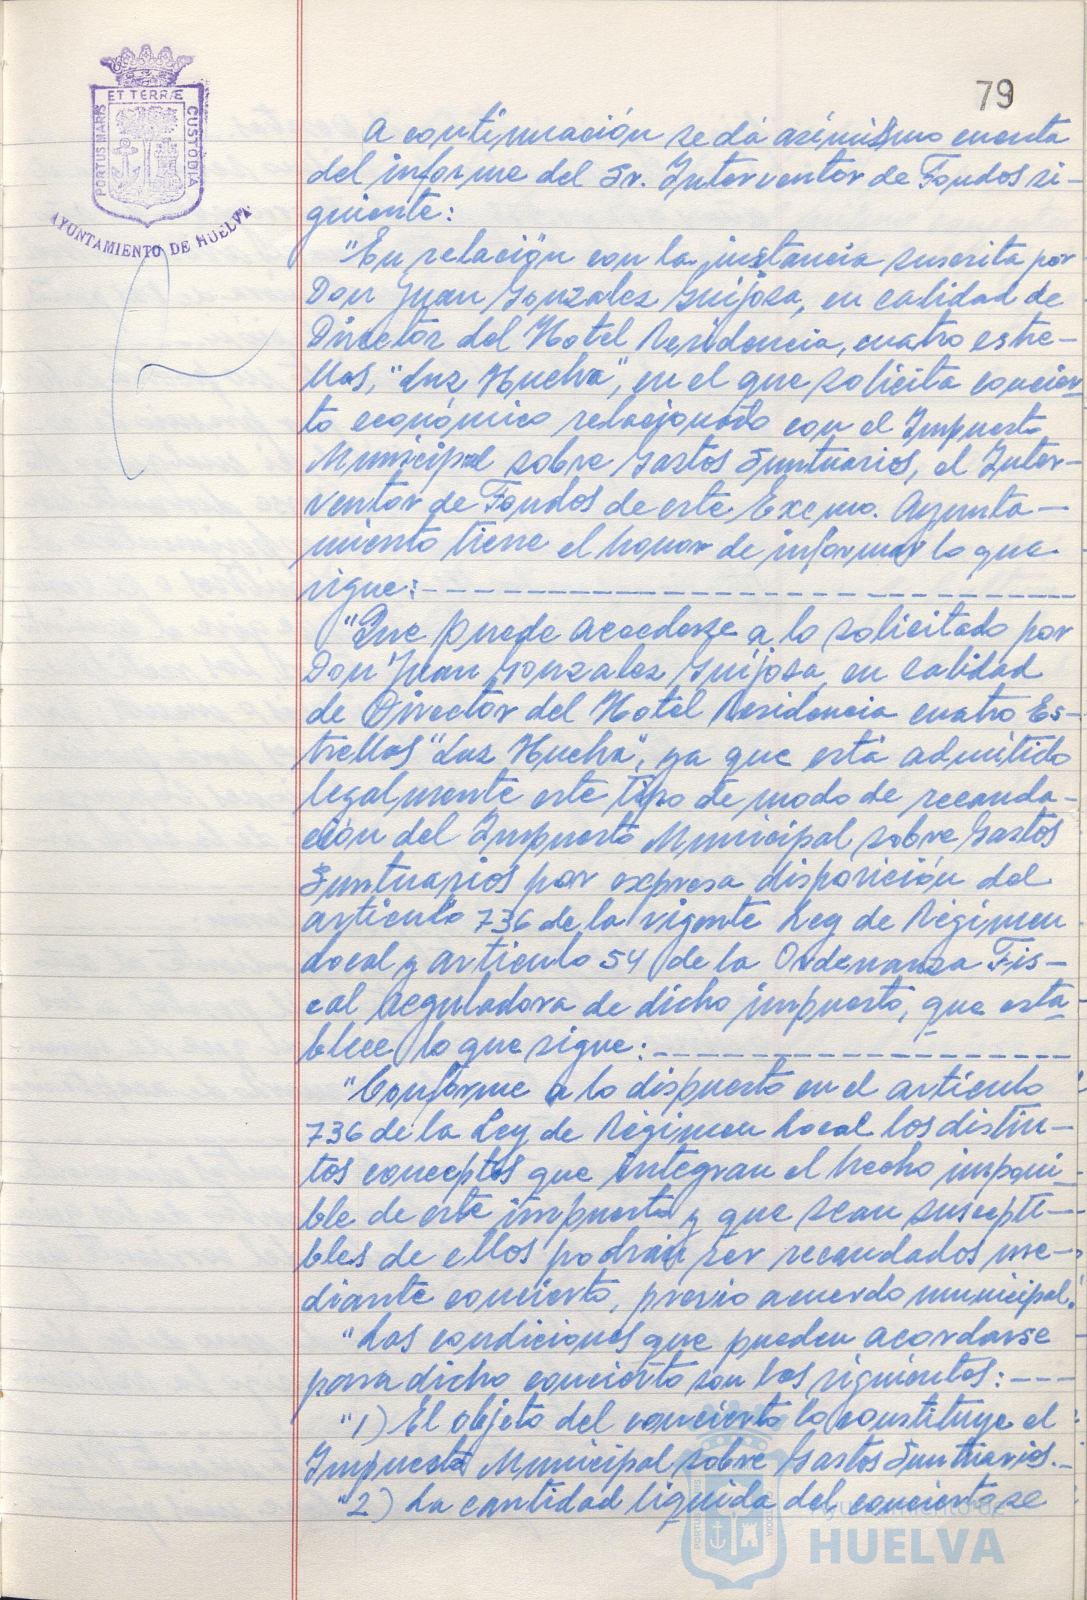 79
ET TERRÆ
PORTUS MARIS
CUSTODIA
AYUNTAMIENTO DE HUELVA
A continuación se dá asímismo cuenta
del informe del Sr. Interventor de Fondos si-
guiente:
"En relación con la instancia suscrita por
Don Juan Gonzalez Guijosa, en calidad de
Director del Hotel Residencia, cuatro estre-
llas, "Luz Huelva", en el que solicita concier-
to económico relacionado con el Impuesto
Municipal sobre Gastos Suntuarios, el Inter-
ventor de Fondos de este Excmo. Ayunta-
miento tiene el honor de informar lo que
sigue:
"Que puede accederse a lo solicitado por
Don Juan Gonzalez Guijosa, en calidad
de Director del Hotel Residencia cuatro Es-
trellas "Luz Huelva", ya que está admitido
legalmente este tipo de modo de recauda-
ción del Impuesto Municipal sobre Gastos
Suntuarios por expresa disposición del
artículo 736 de la vigente Ley de Régimen
Local y artículo 54 de la Ordenanza Fis-
cal Reguladora de dicho impuesto, que esta-
blece lo que sigue:
"Conforme a lo dispuesto en el artículo
736 de la Ley de Régimen Local los distin-
tos conceptos que integran el hecho imponi-
ble de este impuesto y que sean suscepti-
bles de ellos podrán ser recaudados me-
diante concierto, previo acuerdo municipal.
"Las condiciones que pueden acordarse
para dicho concierto son las siguientes:
"1) El objeto del concierto lo constituye el
Impuesto Municipal sobre Gastos Suntuarios.
"2) La cantidad líquida del concierto se
Ayuntamiento de
HUELVA